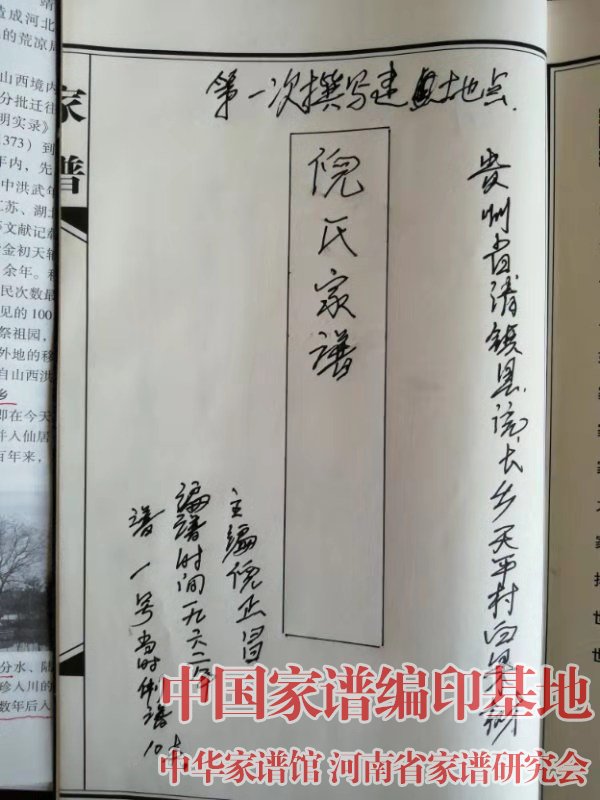 第一次撰写建具地点
贵州省清镇县流长乡天平村白果树
倪氏家谱
主编倪正昌
编谱时间一九六二年
谱一号当时
家谱
靖
造成河北
的荒凉
山西境内
分批迁往
明实录》
1373）到
年内，先
中洪武年
江苏、湖
文献记载
金初天辅
余年。移
民次数最
见的100
祭祖园，
外地的移
自山西洪
乡
即在今天
并入仙居
百年来，
分水、陆
珍入川的
数年后入
中国家谱编印基地
中华家谱馆 河南省家谱研究会